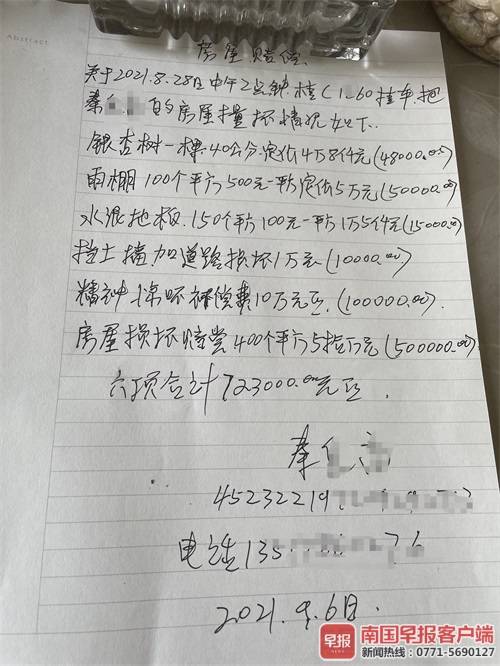 Abstract
房屋赔偿.
关于2021.8.28日中午2点钟.桂C1.60挂车.把
秦 的房屋撞坏情况如下.
银杏树一棵40公分.定价4万8仟元(48000.00)
雨棚100个平方500元一平方定价5万元(50000.00)
水泥地板.150个平方100元一平方1万5仟元(15000.00)
挡土墙加道路损坏1万元(10000.00)
精神 补偿费10万元正.(100000.00)
房屋损坏赔尝400个平方5拾万元(500000.00)
六项合计723000.00元正.
秦
45232219
电话135 76
2021.9.6日.
早报 南国早报客户端
新闻热线:0771-5690127